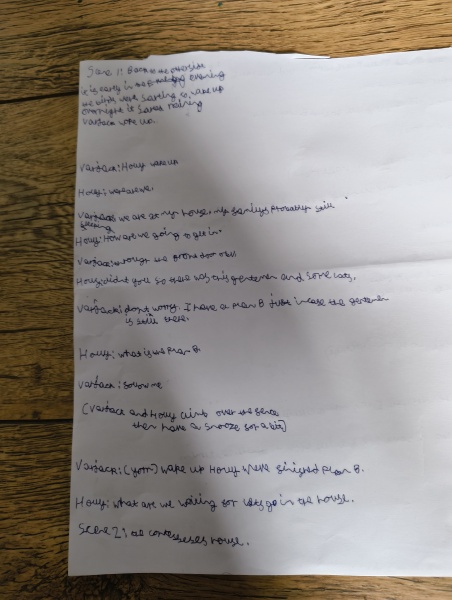 Scene 1: Back to the otherside
it is early in the evening
we birds were starting to wake up
overnight it starts raining
Varjack woke up.
Varjack: Holly wake up
Holly: were are we.
Varjack: we are at my house, my family's probably still
sleeping
Holly: How are we going to get in.
Varjack: through the front door
Holly: didnt you so there was this gentemen and some cats,
Varjack: dont worry. I have a plan B just incase the gentemen
is still there.
Holly: what is we plan B
Varjack: sollow me
(Varjack and Holly climb over the fence
then have a snooze for a bit)
Varjack: (yorn) wake up Holly we've finished plan B.
Holly: what are we waiting for lets go in the house.
Scene 2: the house.